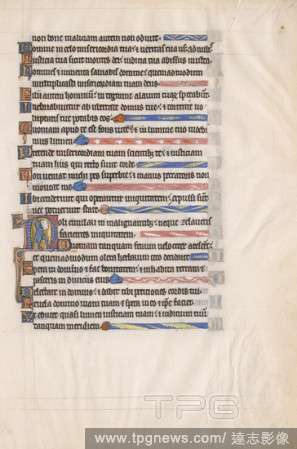 non … maliciam autem non odiuit
Domine in celo misericordia tua: et ueritas tua usq ad nubes
Iusticia tua sicut montes dei: iudicia tua abissus multa
Homines et iumenta saluabis domine: quemadmodum
multiplicasti misericordiam tuam deus
filii autem hominum: in tegmine alarum tuar sperabunt
Inebriabuntur ab ubertate domus tue: et torrente uo
luptatis tue potabis eos
Quoniam apud te est fons uite: et in lumine tuo uidebi
mus lumen
Pretende misericordiam tuam scientibz te: et iusticiam
tuam hiis qui recto sunt corde
Non ueniat michi pes superbie: et manus peccatoris non
moueat me
Ibi ceciderunt qui operantur iniquitatem: expulsi sunt
nec potuerunt stare
Noli emulari in malignantibz: neque zelaueris
facientes iniquitatem
Quoniam tanquam fenum uelociter arescent:
et quemadmodum olera herbarum cito decident
Spera in domino et fac bonitatem: et inhabita terram et
pasceris in diuiciis eius
Delectare in domino: et dabit tibi peticiones cordis tui
Reuela domino uiam tuam et spera in eo: et ipse faciet
Et educet quasi lumen iusticiam tuam: et iudicium tuum
tanquam meridiem
TPG
www.tpgnews.com/達志影像